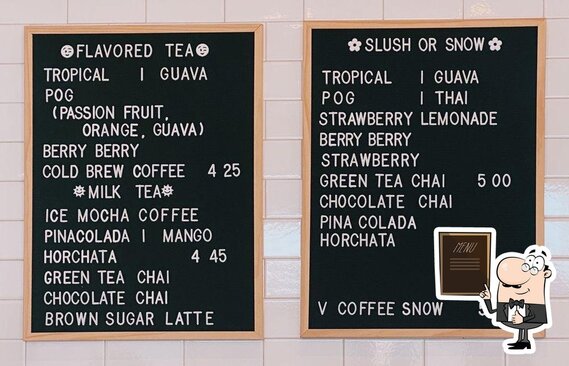 FLAVORED TEA
TROPICAL | GUAVA
POG
(PASSION FRUIT,
ORANGE, GUAVA)
BERRY BERRY
COLD BREW COFFEE 4 25
MILK TEA
ICE MOCHA COFFEE
PINACOLADA | MANGO
HORCHATA 4 45
GREEN TEA CHAI
CHOCOLATE CHAI
BROWN SUGAR LATTE
SLUSH OR SNOW
TROPICAL | GUAVA
POG | THAI
STRAWBERRY LEMONADE
BERRY BERRY
STRAWBERRY
GREEN TEA CHAI 5 00
CHOCOLATE CHAI
PINA COLADA
HORCHATA
V COFFEE SNOW
MENU